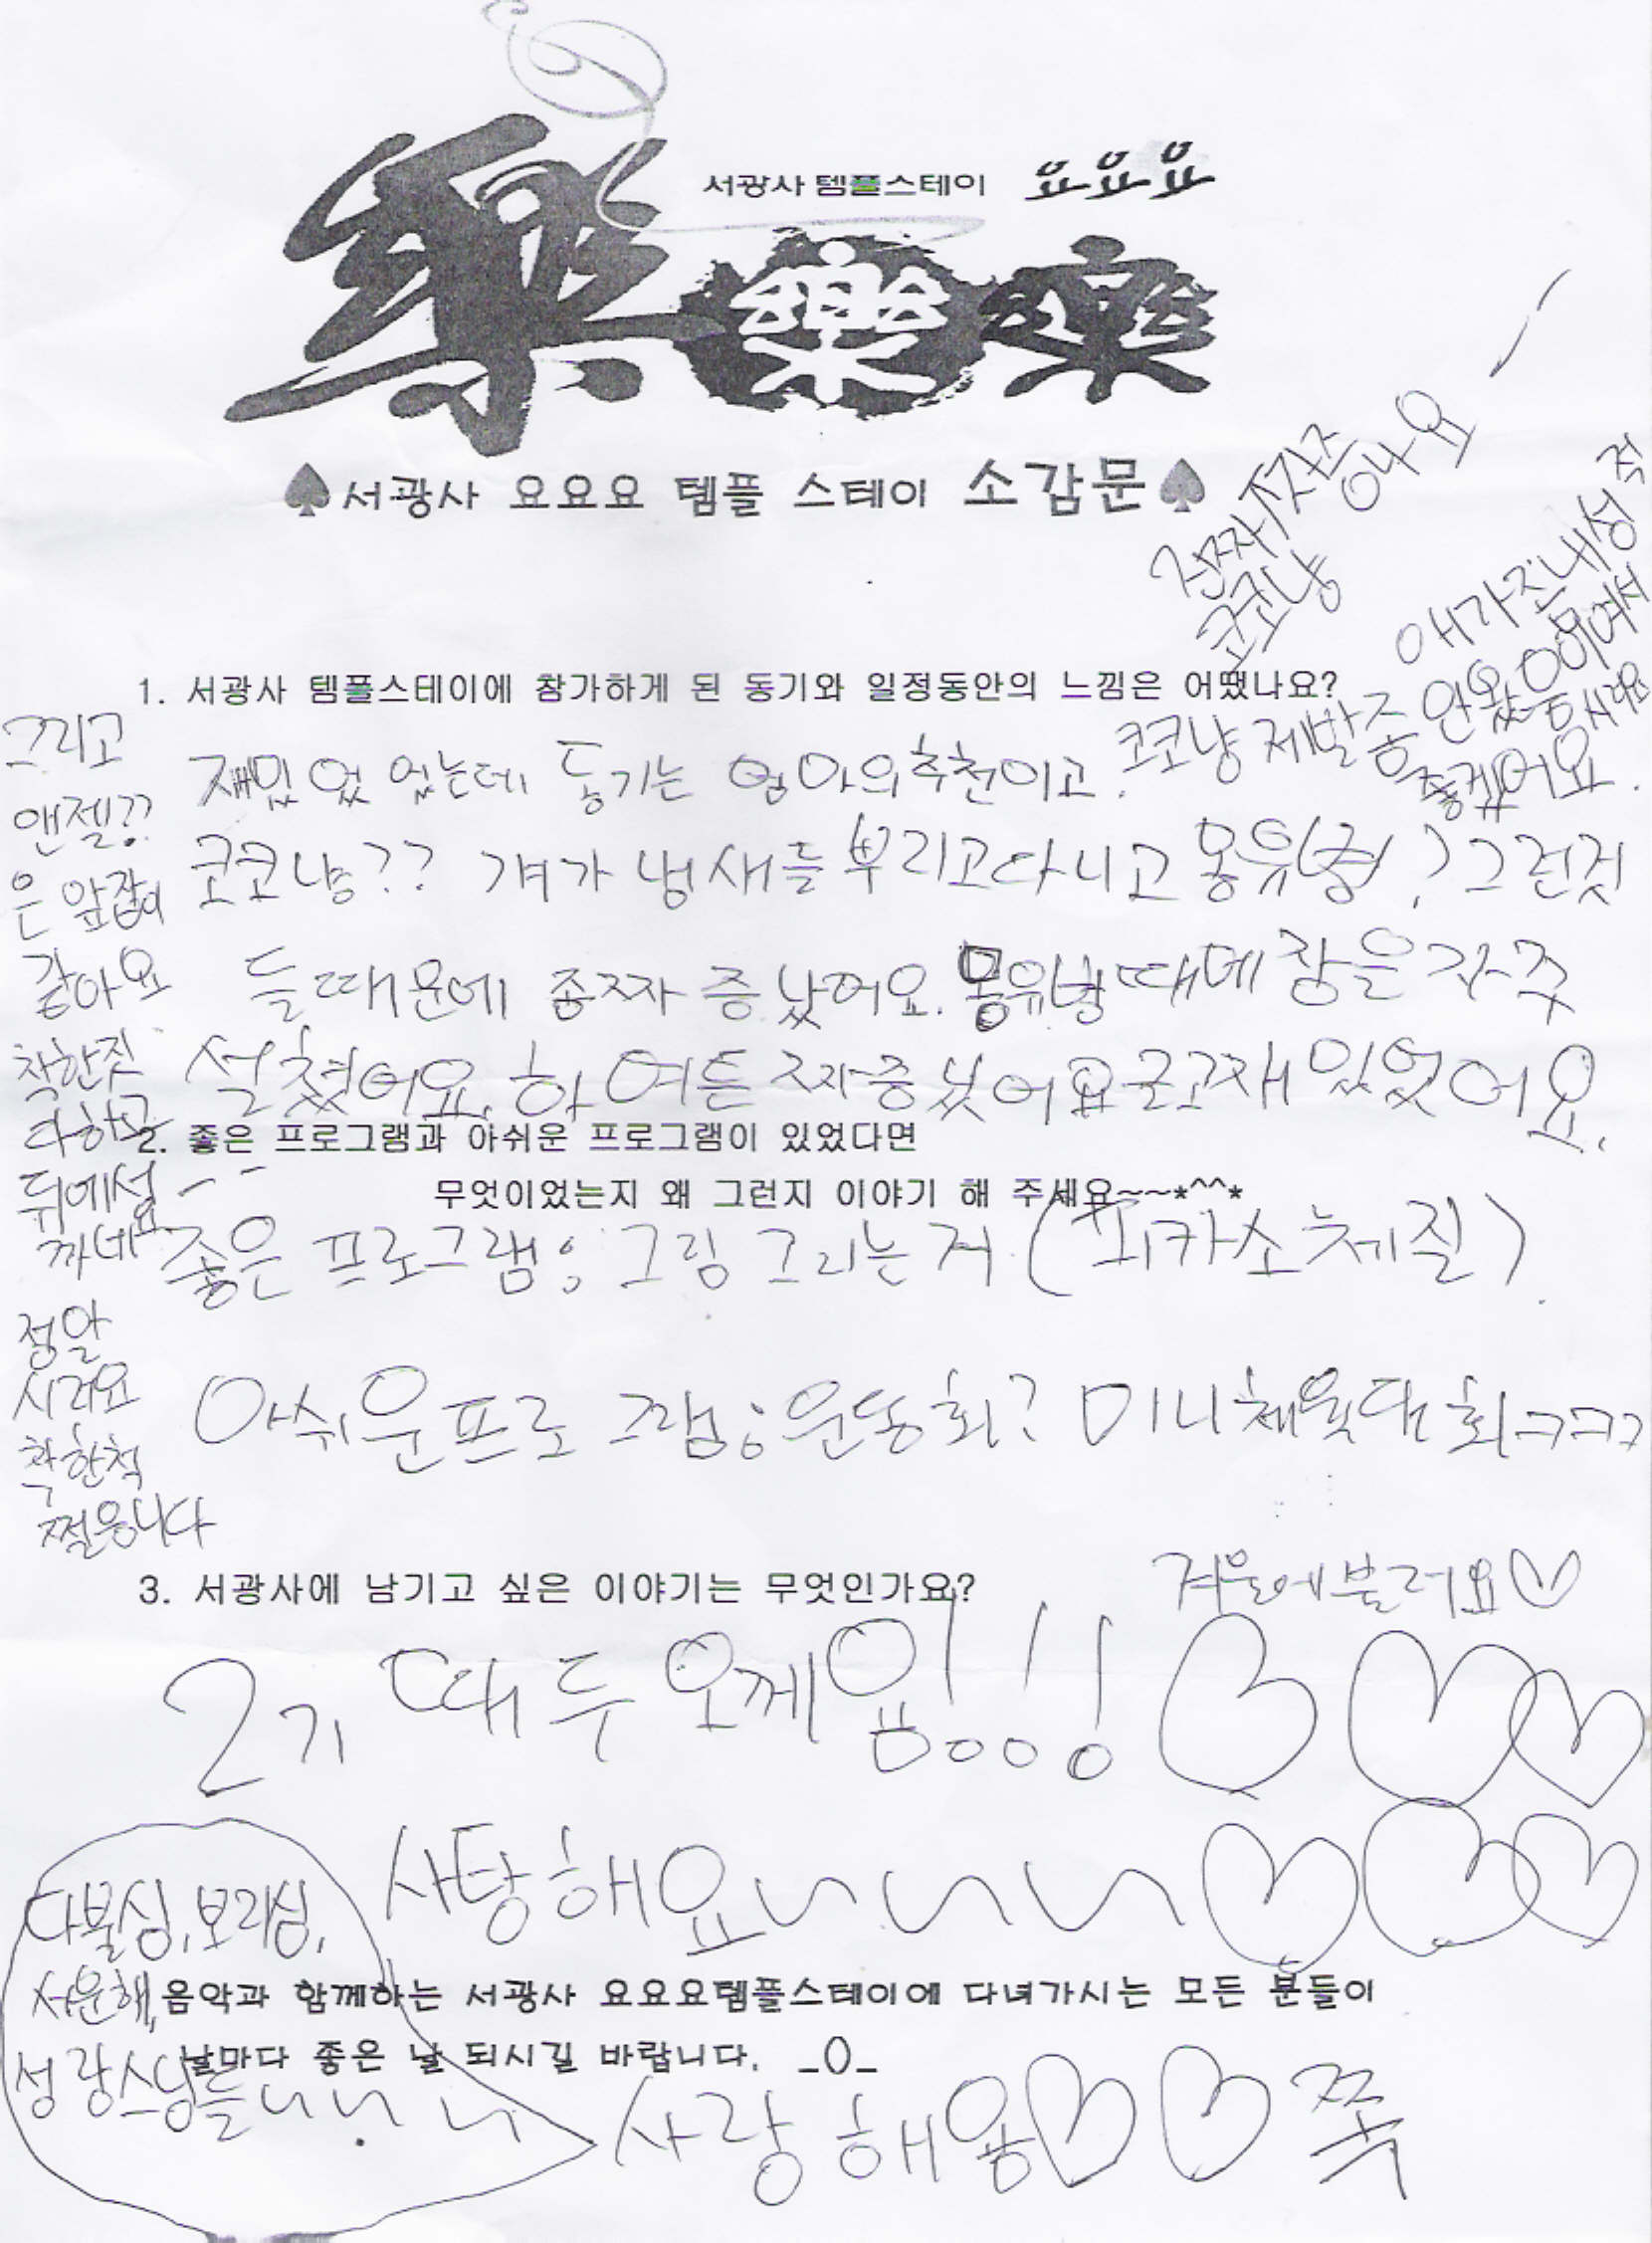 서광사 템플스테이 요요요
樂 樂 樂
♠서광사 요요요 템플 스테이 소감문♠
진짜 짜증나요
코코냥
1. 서광사 템플스테이에 참가하게 된 동기와 일정동안의 느낌은 어땠나요?
재밌었 었는데 동기는 엄마의추천이고.
코코냥 제발좀 안왔음
좋겠어요.
애가 좀 내성적
코코냥?? 걔가 냉새들 부리고다니고 몽유병? 그런것
들때문에 좀짜증났어요. 몽유병때메 잠은 자주
설쳤어요. 하여튼 짜증났어요 글고재있었어요.
그리고
앤젤??
은 앞잡이
같아요
착한짓
다하고
뒤에서
까네요
정말
시러요
착한척
쩔응니다
2. 좋은 프로그램과 아쉬운 프로그램이 있었다면
무엇이었는지 왜 그런지 이야기 해 주세요~~*^^*
좋은 프로그램; 그림 그리는거 (피카소체질)
아쉬운프로그램; 운동회? 미니체육대회ㅋㅋㅋ
3. 서광사에 남기고 싶은 이야기는 무엇인가요?
겨울에불러요♡
2기 때두 오께욤!!! ♡♡♡
사탕해요~~~ ♡♡♡
다불싱, 보리싱,
서운해,
성광스님들~~~
음악과 함께하는 서광사 요요요템플스테이에 다녀가시는 모든 분들이
날마다 좋은 날 되시길 바랍니다. _0_
사랑해용♡♡쪽